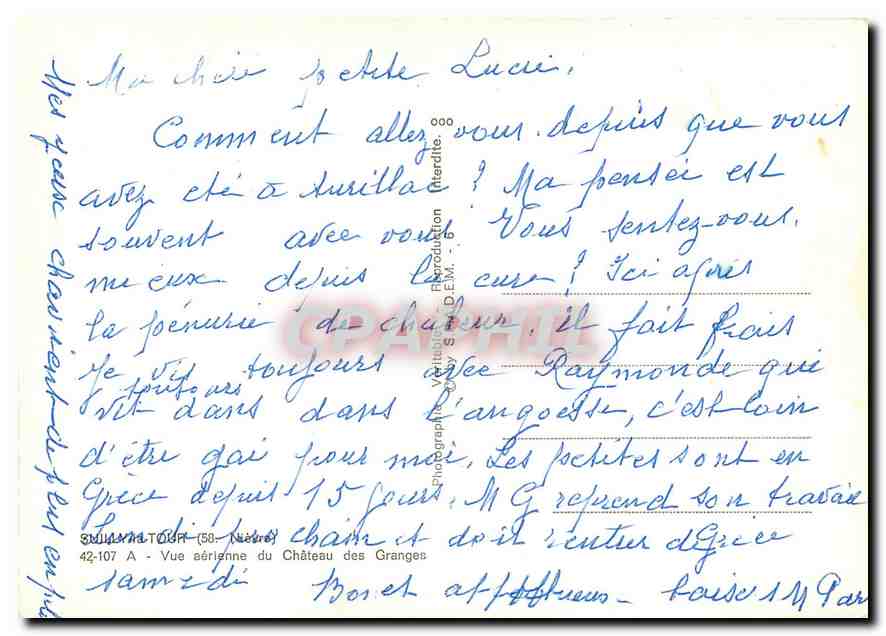 Ma chère petite Lucie,
Comment allez vous depuis que vous
avez été à Aurillac ? Ma pensée est
souvent avec vous Vous sentez-vous
mieux depuis la cure ? Ici après
la pénurie de chaleur, il fait frais
Je vis toujours avec Raymonde qui
toutours
vit dans dans l'angoesse, c'est loin
d'être gai pour moi. Les petites sont en
Grèce depuis 15 jours. M G reprend son travail
lundi prochain et doit rentrer de Grèce
samedi Bon et affectueux baisers M Par
Mes yeux chavirent de plus en plus
Photographie Véritable - Reproduction Interdite.
D.E.I.M. - 6
SUILLY-LA-TOUR (58. Nièvre)
42-107 A - Vue aérienne du Château des Granges
CPAPHIL